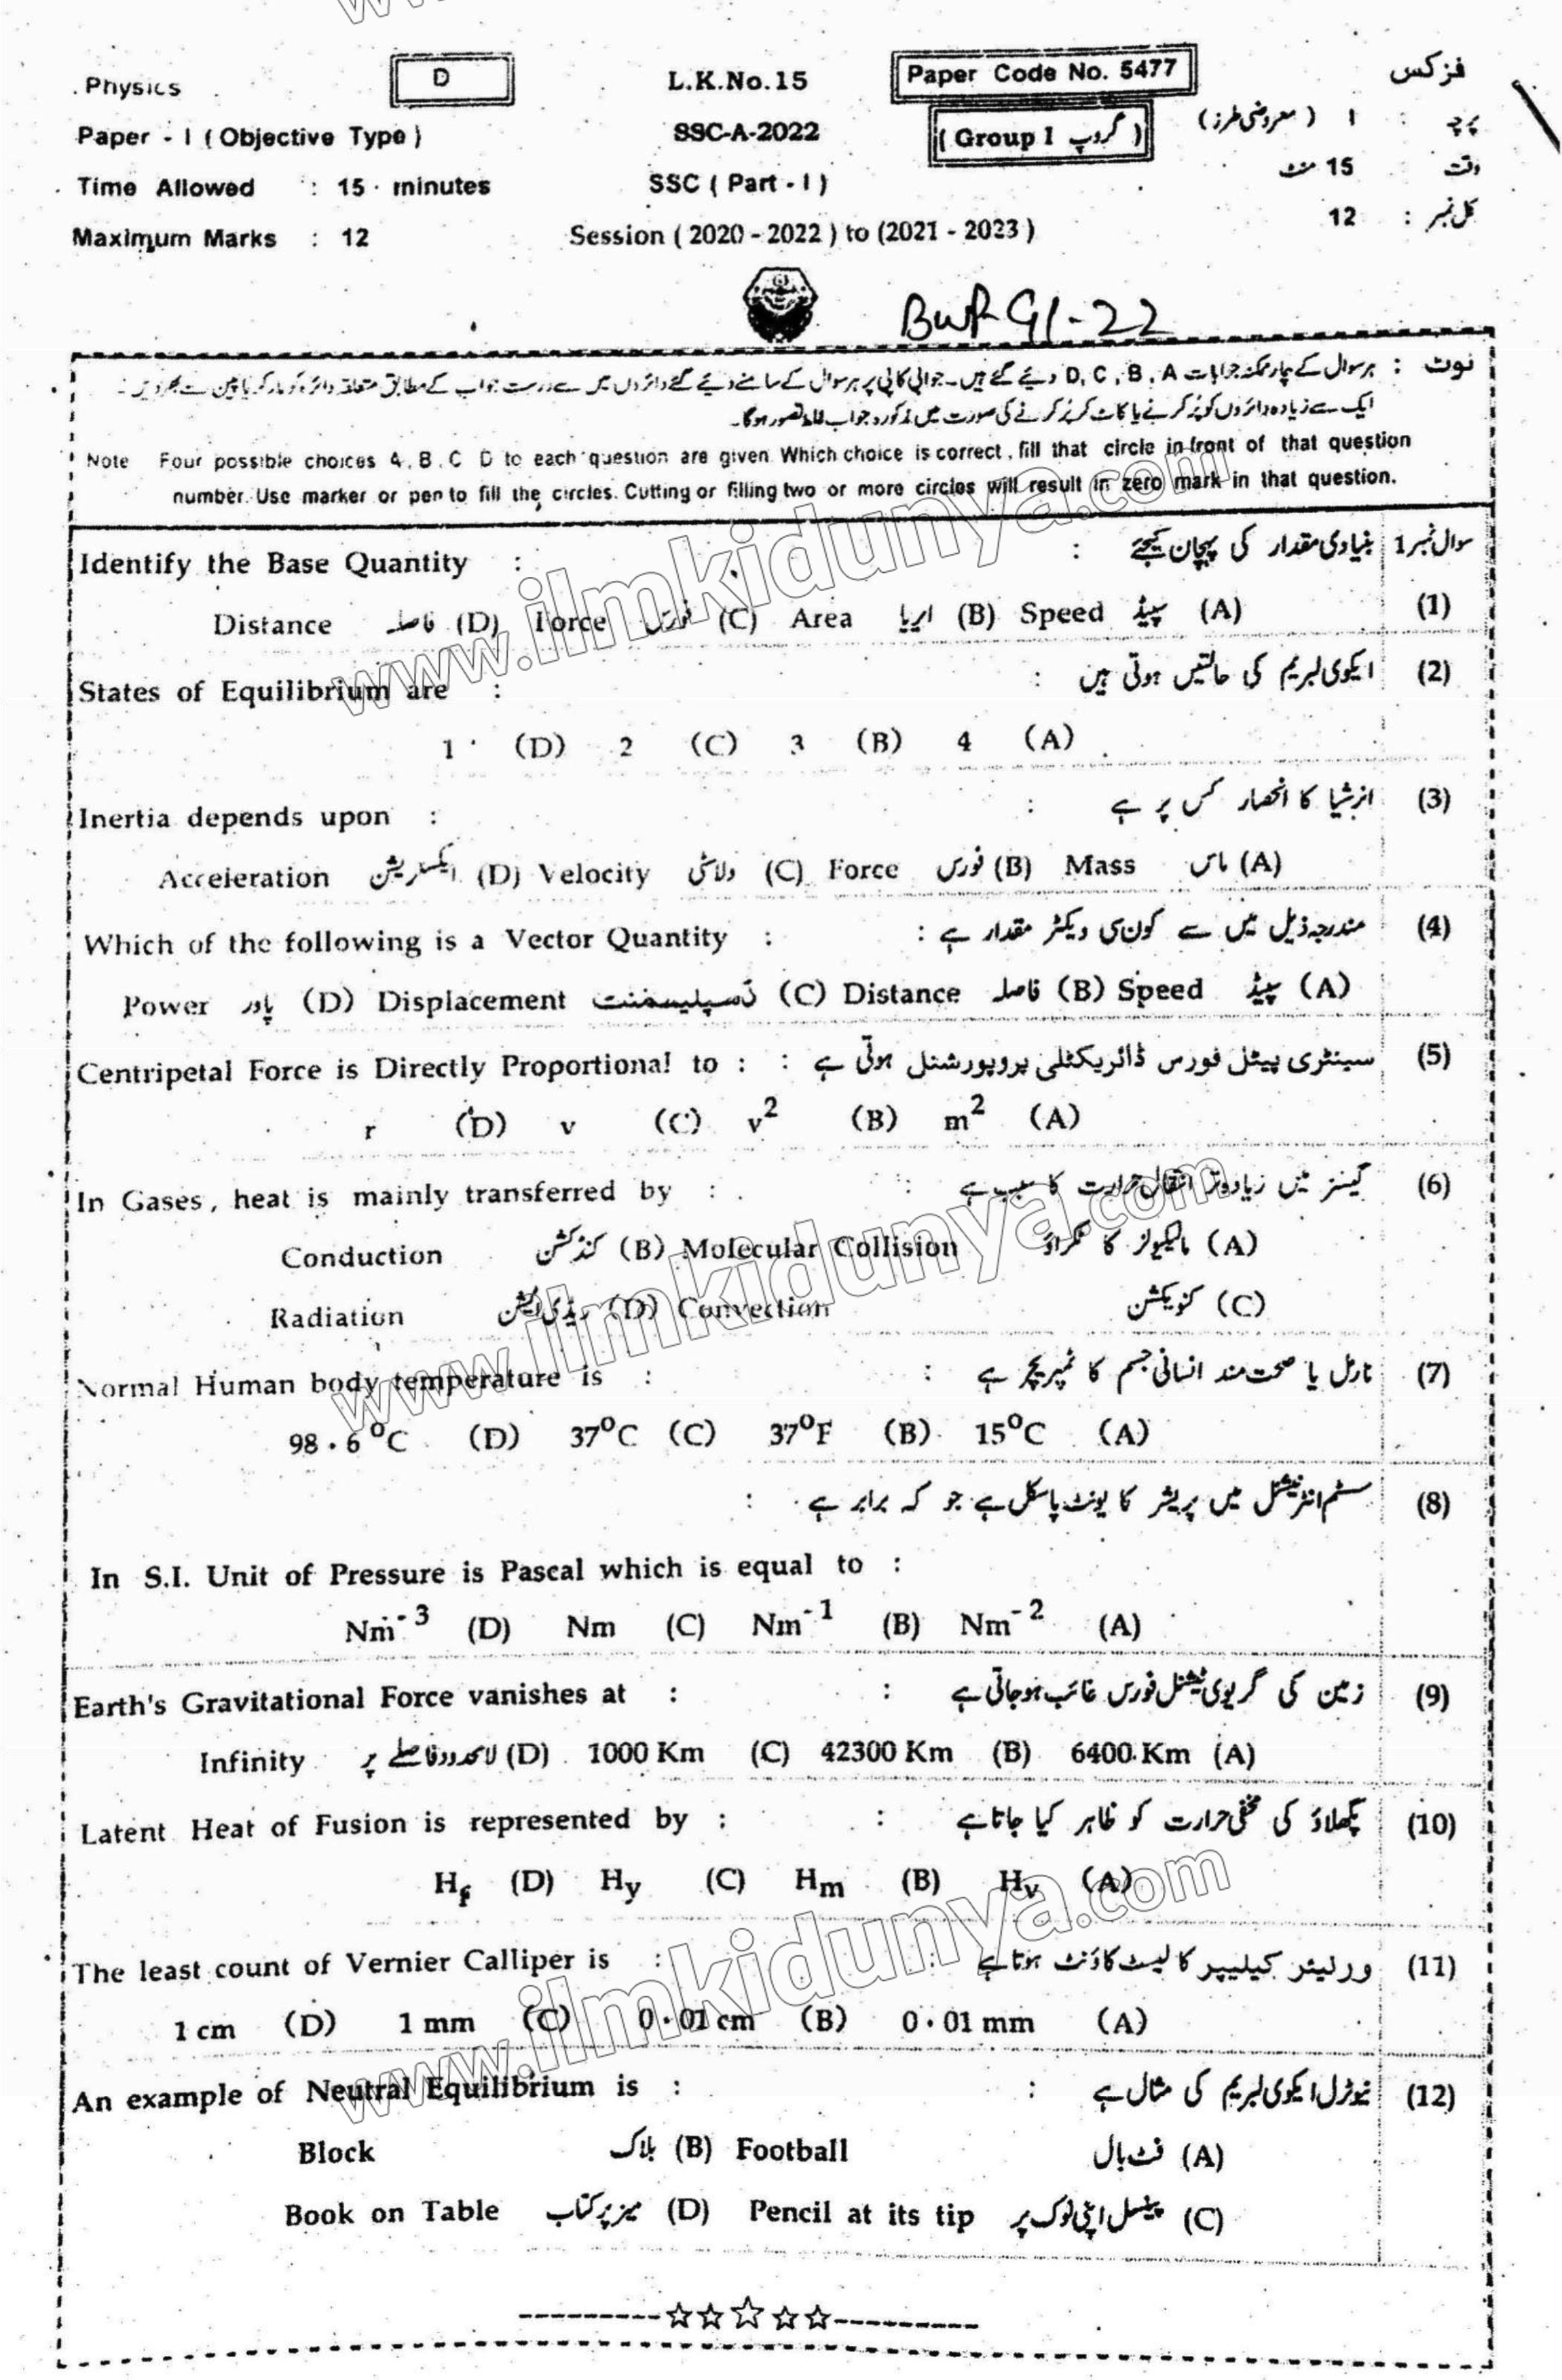 Physics D L.K.No.15 Paper Code No. 5477 فزکس
Paper - I ( Objective Type ) SSC-A-2022 ( Group I گروپ ) پرچہ : I ( معروضی طرز )
Time Allowed : 15 minutes SSC ( Part - I ) وقت : 15 منٹ
Maximum Marks : 12 Session ( 2020 - 2022 ) to (2021 - 2023 ) کل نمبر : 12
BWP G1-22
نوٹ : ہر سوال کے چار ممکنہ جوابات D, C, B, A دیئے گئے ہیں۔ جوابی کاپی پر ہر سوال کے سامنے دیئے گئے دائروں میں سے درست جواب کے مطابق متعلقہ دائرہ کو مارکر یا پین سے بھر دیں۔
ایک سے زیادہ دائروں کو پُر کرنے یا کاٹ کر پُر کرنے کی صورت میں مذکورہ جواب غلط تصور ہوگا۔
Note Four possible choices A, B, C D to each question are given. Which choice is correct, fill that circle in front of that question
number. Use marker or pen to fill the circles. Cutting or filling two or more circles will result in zero mark in that question.
Identify the Base Quantity : : بنیادی مقدار کی پہچان کیجئے سوال نمبر 1
Distance فاصلہ (D) Force فورس (C) Area ایریا (B) Speed سپیڈ (A) (1)
States of Equilibrium are : : ایکوی لبریم کی حالتیں ہوتی ہیں (2)
1 (D) 2 (C) 3 (B) 4 (A)
Inertia depends upon : : انرشیا کا انحصار کس پر ہے (3)
Acceleration ایکسلریشن (D) Velocity ولاسٹی (C) Force فورس (B) Mass ماس (A)
Which of the following is a Vector Quantity : : مندرجہ ذیل میں سے کون سی ویکٹر مقدار ہے (4)
Power پاور (D) Displacement ڈسپلیسمنٹ (C) Distance فاصلہ (B) Speed سپیڈ (A)
Centripetal Force is Directly Proportional to : : سینٹری پیٹل فورس ڈائریکٹلی پروپورشنل ہوتی ہے (5)
r (D) v (C) v² (B) m² (A)
In Gases, heat is mainly transferred by : : گیسز میں زیادہ تر انتقال حرارت کا سبب ہے (6)
Conduction کنڈکشن (B) Molecular Collision مالیکیولز کا ٹکراؤ (A)
Radiation ریڈی ایشن (D) Convection کنویکشن (C)
Normal Human body temperature is : : نارمل یا صحت مند انسانی جسم کا ٹمپریچر ہے (7)
98.6⁰C (D) 37⁰C (C) 37⁰F (B) 15⁰C (A)
: سسٹم انٹرنیشنل میں پریشر کا یونٹ پاسکل ہے جو کہ برابر ہے (8)
In S.I. Unit of Pressure is Pascal which is equal to :
Nm⁻³ (D) Nm (C) Nm⁻¹ (B) Nm⁻² (A)
Earth's Gravitational Force vanishes at : : زمین کی گریوی ٹیشنل فورس غائب ہو جاتی ہے (9)
Infinity لامحدود فاصلے پر (D) 1000 Km (C) 42300 Km (B) 6400 Km (A)
Latent Heat of Fusion is represented by : : پگھلاؤ کی مخفی حرارت کو ظاہر کیا جاتا ہے (10)
Hf (D) Hy (C) Hm (B) Hv (A)
The least count of Vernier Calliper is : : ورنیئر کیلیپر کا لیسٹ کاؤنٹ ہوتا ہے (11)
1 cm (D) 1 mm (C) 0.01 cm (B) 0.01 mm (A)
An example of Neutral Equilibrium is : : نیوٹرل ایکوی لبریم کی مثال ہے (12)
Block بلاک (B) Football فٹ بال (A)
Book on Table میز پر کتاب (D) Pencil at its tip پینسل اپنی نوک پر (C)
www.ilmkidunya.com
www.ilmkidunya.com
www.ilmkidunya.com